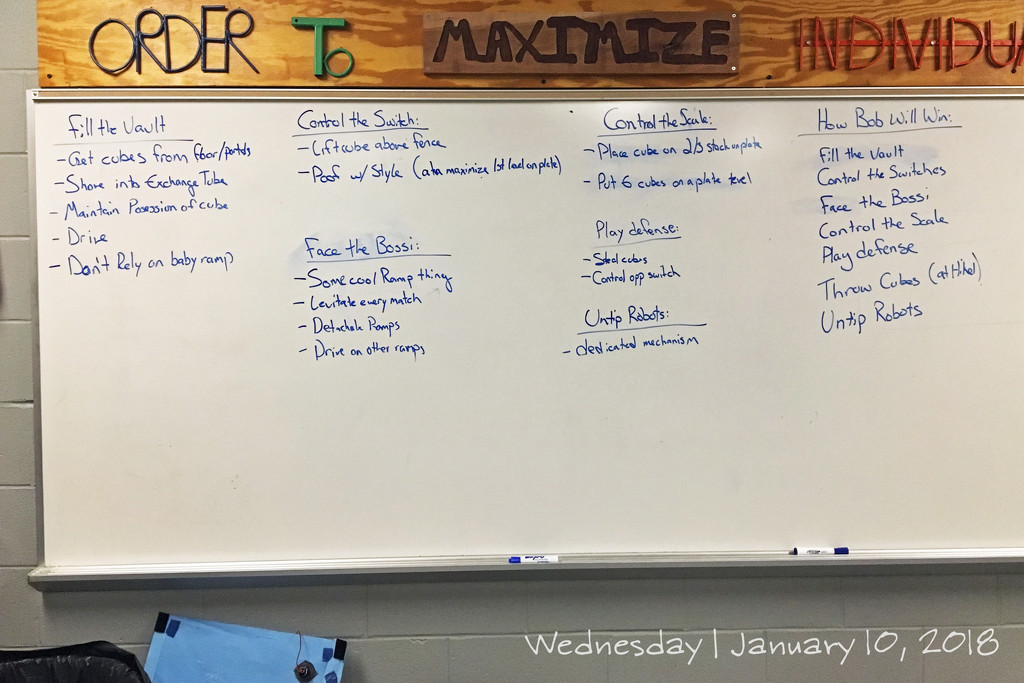 ORDER To MAXIMIZE
Fill the Vault
- Get cubes from floor/portals
- Shove into Exchange Tube
- Maintain Possession of cube
- Drive
- Don't Rely on baby ramp
Control the Switch:
- Lift cube above fence
- Poof w/ Style (aka maximize 1st load on plate)
Face the Bossi:
- Some cool Ramp thing
- Levitate every match
- Detachable Ramps
- Drive on other ramps
Control the Scale:
- Place cube on 2/3 stack on plate
- Put 6 cubes on a plate level
Play defense:
- Steal cubes
- Control opp switch
Untip Robots:
- dedicated mechanism
How Bob Will Win:
Fill the Vault
Control the Switches
Face the Bossi
Control the Scale
Play defense
Throw Cubes
Untip Robots
Wednesday | January 10, 2018